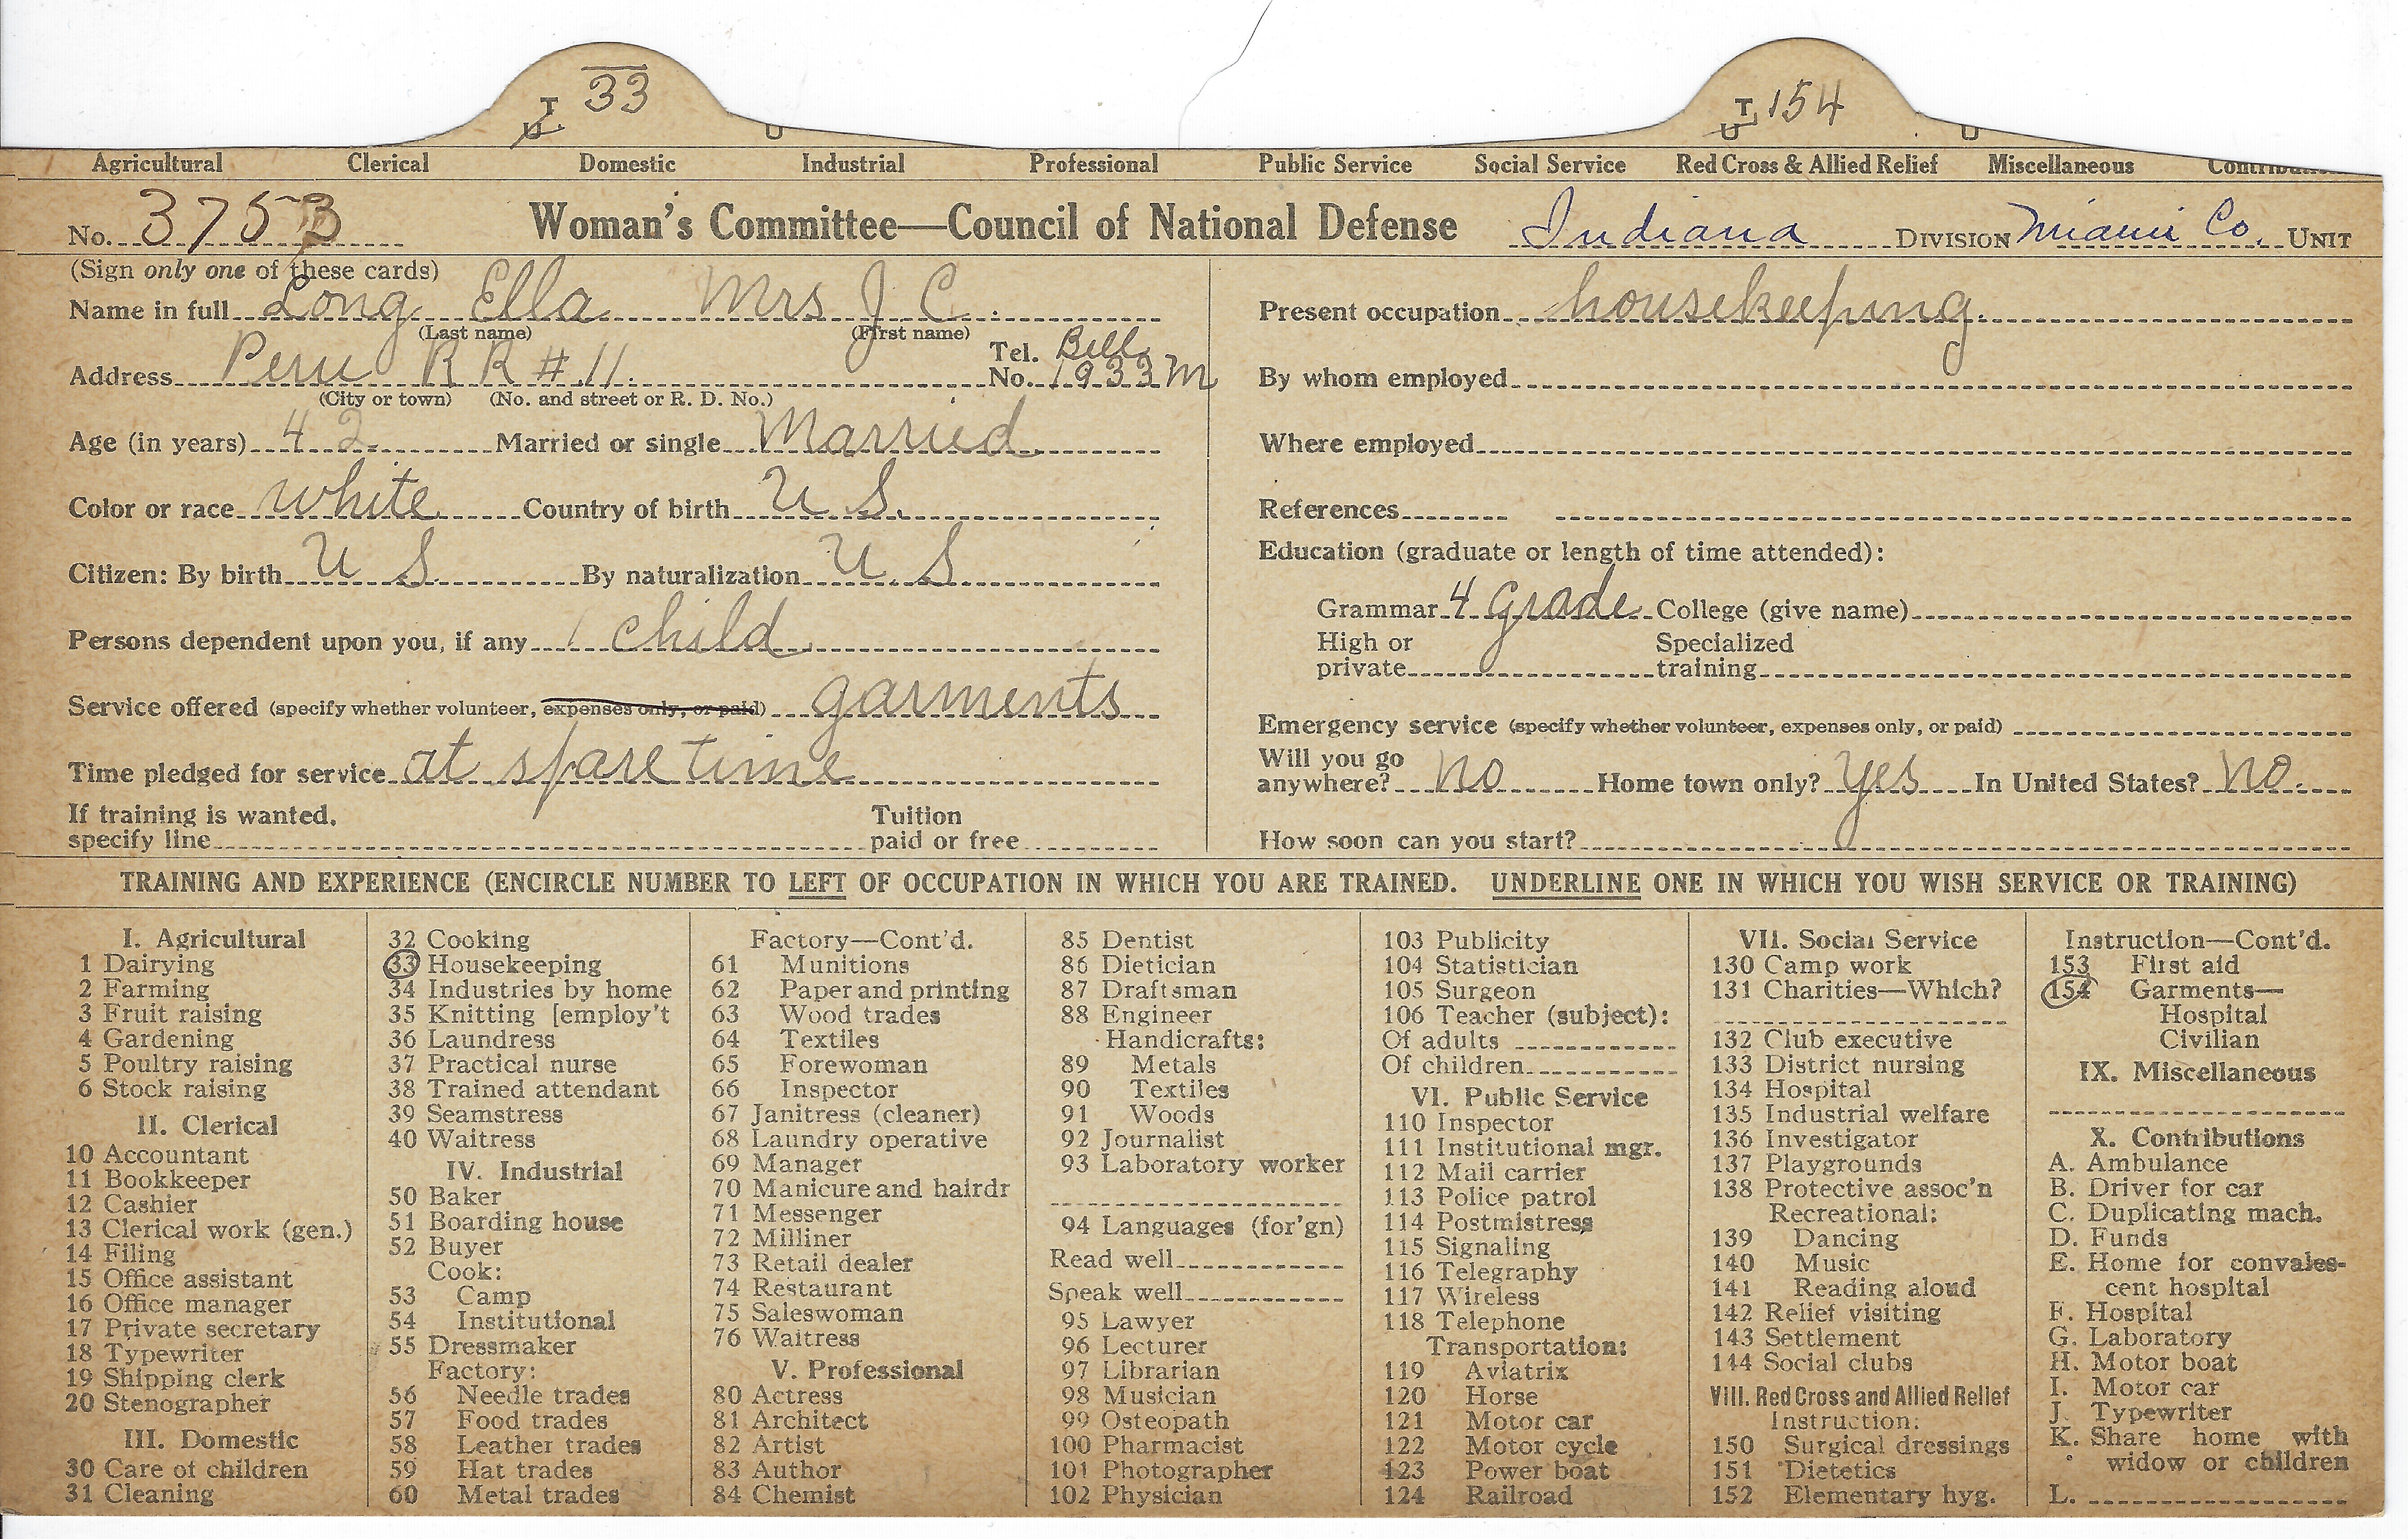 T 33
U
U
T 154
U
U
Agricultural Clerical Domestic Industrial Professional Public Service Social Service Red Cross & Allied Relief Miscellaneous
No. 3753 Woman's Committee—Council of National Defense Indiana DIVISION Miami Co. UNIT
(Sign only one of these cards)
Name in full Long Ella Mrs J C.
(Last name) (First name)
Address Peru R R # 11. Tel. No. Bell 1933 M
(City or town) (No. and street or R. D. No.)
Age (in years) 42 Married or single Married
Color or race white Country of birth U S.
Citizen: By birth U S. By naturalization U. S
Persons dependent upon you, if any 1 child
Service offered (specify whether volunteer, expenses only, or paid) garments
Time pledged for service at spare time
If training is wanted, specify line Tuition paid or free
Present occupation housekeeping.
By whom employed
Where employed
References
Education (graduate or length of time attended):
Grammar 4 grade College (give name)
High or private Specialized training
Emergency service (specify whether volunteer, expenses only, or paid)
Will you go anywhere? no Home town only? yes In United States? no.
How soon can you start?
TRAINING AND EXPERIENCE (ENCIRCLE NUMBER TO LEFT OF OCCUPATION IN WHICH YOU ARE TRAINED. UNDERLINE ONE IN WHICH YOU WISH SERVICE OR TRAINING)
I. Agricultural
1 Dairying
2 Farming
3 Fruit raising
4 Gardening
5 Poultry raising
6 Stock raising
II. Clerical
10 Accountant
11 Bookkeeper
12 Cashier
13 Clerical work (gen.)
14 Filing
15 Office assistant
16 Office manager
17 Private secretary
18 Typewriter
19 Shipping clerk
20 Stenographer
III. Domestic
30 Care of children
31 Cleaning
32 Cooking
33 Housekeeping
34 Industries by home
35 Knitting [employ't
36 Laundress
37 Practical nurse
38 Trained attendant
39 Seamstress
40 Waitress
IV. Industrial
50 Baker
51 Boarding house
52 Buyer
Cook:
53 Camp
54 Institutional
55 Dressmaker
Factory:
56 Needle trades
57 Food trades
58 Leather trades
59 Hat trades
60 Metal trades
Factory—Cont'd.
61 Munitions
62 Paper and printing
63 Wood trades
64 Textiles
65 Forewoman
66 Inspector
67 Janitress (cleaner)
68 Laundry operative
69 Manager
70 Manicure and hairdr
71 Messenger
72 Milliner
73 Retail dealer
74 Restaurant
75 Saleswoman
76 Waitress
V. Professional
80 Actress
81 Architect
82 Artist
83 Author
84 Chemist
85 Dentist
86 Dietician
87 Draftsman
88 Engineer
Handicrafts:
89 Metals
90 Textiles
91 Woods
92 Journalist
93 Laboratory worker
94 Languages (for'gn)
Read well
Speak well
95 Lawyer
96 Lecturer
97 Librarian
98 Musician
99 Osteopath
100 Pharmacist
101 Photographer
102 Physician
103 Publicity
104 Statistician
105 Surgeon
106 Teacher (subject):
Of adults
Of children
VI. Public Service
110 Inspector
111 Institutional mgr.
112 Mail carrier
113 Police patrol
114 Postmistress
115 Signaling
116 Telegraphy
117 Wireless
118 Telephone
Transportation:
119 Aviatrix
120 Horse
121 Motor car
122 Motor cycle
123 Power boat
124 Railroad
VII. Social Service
130 Camp work
131 Charities—Which?
132 Club executive
133 District nursing
134 Hospital
135 Industrial welfare
136 Investigator
137 Playgrounds
138 Protective assoc'n
Recreational:
139 Dancing
140 Music
141 Reading aloud
142 Relief visiting
143 Settlement
144 Social clubs
VIII. Red Cross and Allied Relief
Instruction:
150 Surgical dressings
151 Dietetics
152 Elementary hyg.
Instruction—Cont'd.
153 First aid
154 Garments—
Hospital
Civilian
IX. Miscellaneous
X. Contributions
A. Ambulance
B. Driver for car
C. Duplicating mach.
D. Funds
E. Home for convales-
cent hospital
F. Hospital
G. Laboratory
H. Motor boat
I. Motor car
J. Typewriter
K. Share home with
widow or children
L.